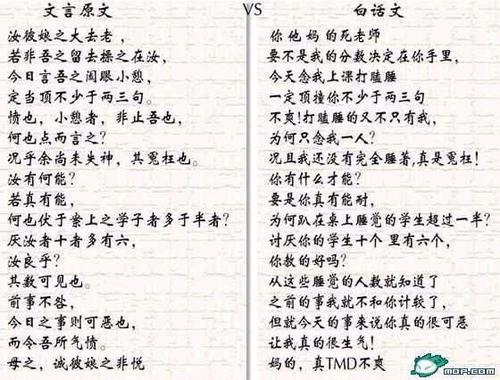 文言原文 VS 白话文
汝彼娘之大去老,
若非吾之留去操之在汝,
今日言吾之阖眼小憩,
定当顶不少于两三句。
愤也,小憩者,非止吾也,
何也点而言之?
况乎余尚未失神,其冤枉也。
汝有何能?
若真有能,
何也伏于案上之学子者多于半者?
厌汝者十者多有六,
汝良乎?
其数可见也。
前事不咎,
今日之事则可恶也,
而令吾所气愤。
母之,诚彼娘之非悦
你他妈的死老师
要不是我的分数决定在你手里,
今天念我上课打瞌睡
一定顶撞你不少于两三句
不爽!打瞌睡的又不只有我,
为何只念我一人?
况且我还没有完全睡著,真是冤枉!
你有什么才能?
要是你真有能耐,
为何趴在桌上睡觉的学生超过一半?
讨厌你的学生十个 里有六个,
你教的好吗?
从这些睡觉的人数就知道了
之前的事我就不和你计较了,
但就今天的事来说你真的很可恶
让我真的很生气!
妈的,真TMD不爽
MOP.COM